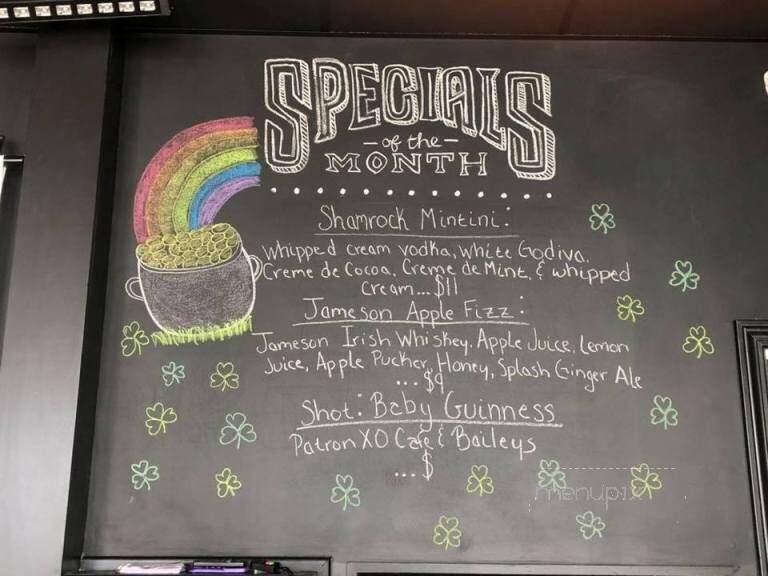 SPECIALS
- of the -
MONTH
Shamrock Mintini:
Whipped cream vodka, White Godiva,
Creme de Cocoa, Creme de Mint, & whipped
cream...$11
Jameson Apple Fizz:
Jameson Irish Whiskey, Apple Juice, Lemon
Juice, Apple Pucker, Honey, Splash Ginger Ale
...$9
Shot: Baby Guinness
Patron XO Cafe & Baileys
...$
menupix